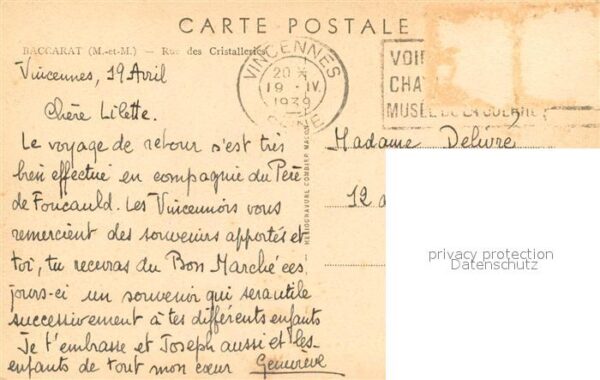 CARTE POSTALE
BACCARAT (M.-et-M.) — Rue des Cristalleries
Vincennes, 19 Avril
Chère Lilette.
Le voyage de retour s'est très
bien effectué en compagnie du Père
de Foucauld. Les Vincennois vous
remercient des souvenirs apportés et
toi, tu recevras du Bon Marché ces
jours-ci un souvenir qui sera utile
successivement à tes différents enfants
Je t'embrasse et Joseph aussi et les
enfants de tout mon cœur Geneviève
VINCENNES
20
19 IV
1939
SEINE
VOI
CHA
MUSÉE DE LA GUERRE
HÉLIOGRAVURE COMBIER MACON
Madame Delivre
12
privacy protection
Datenschutz